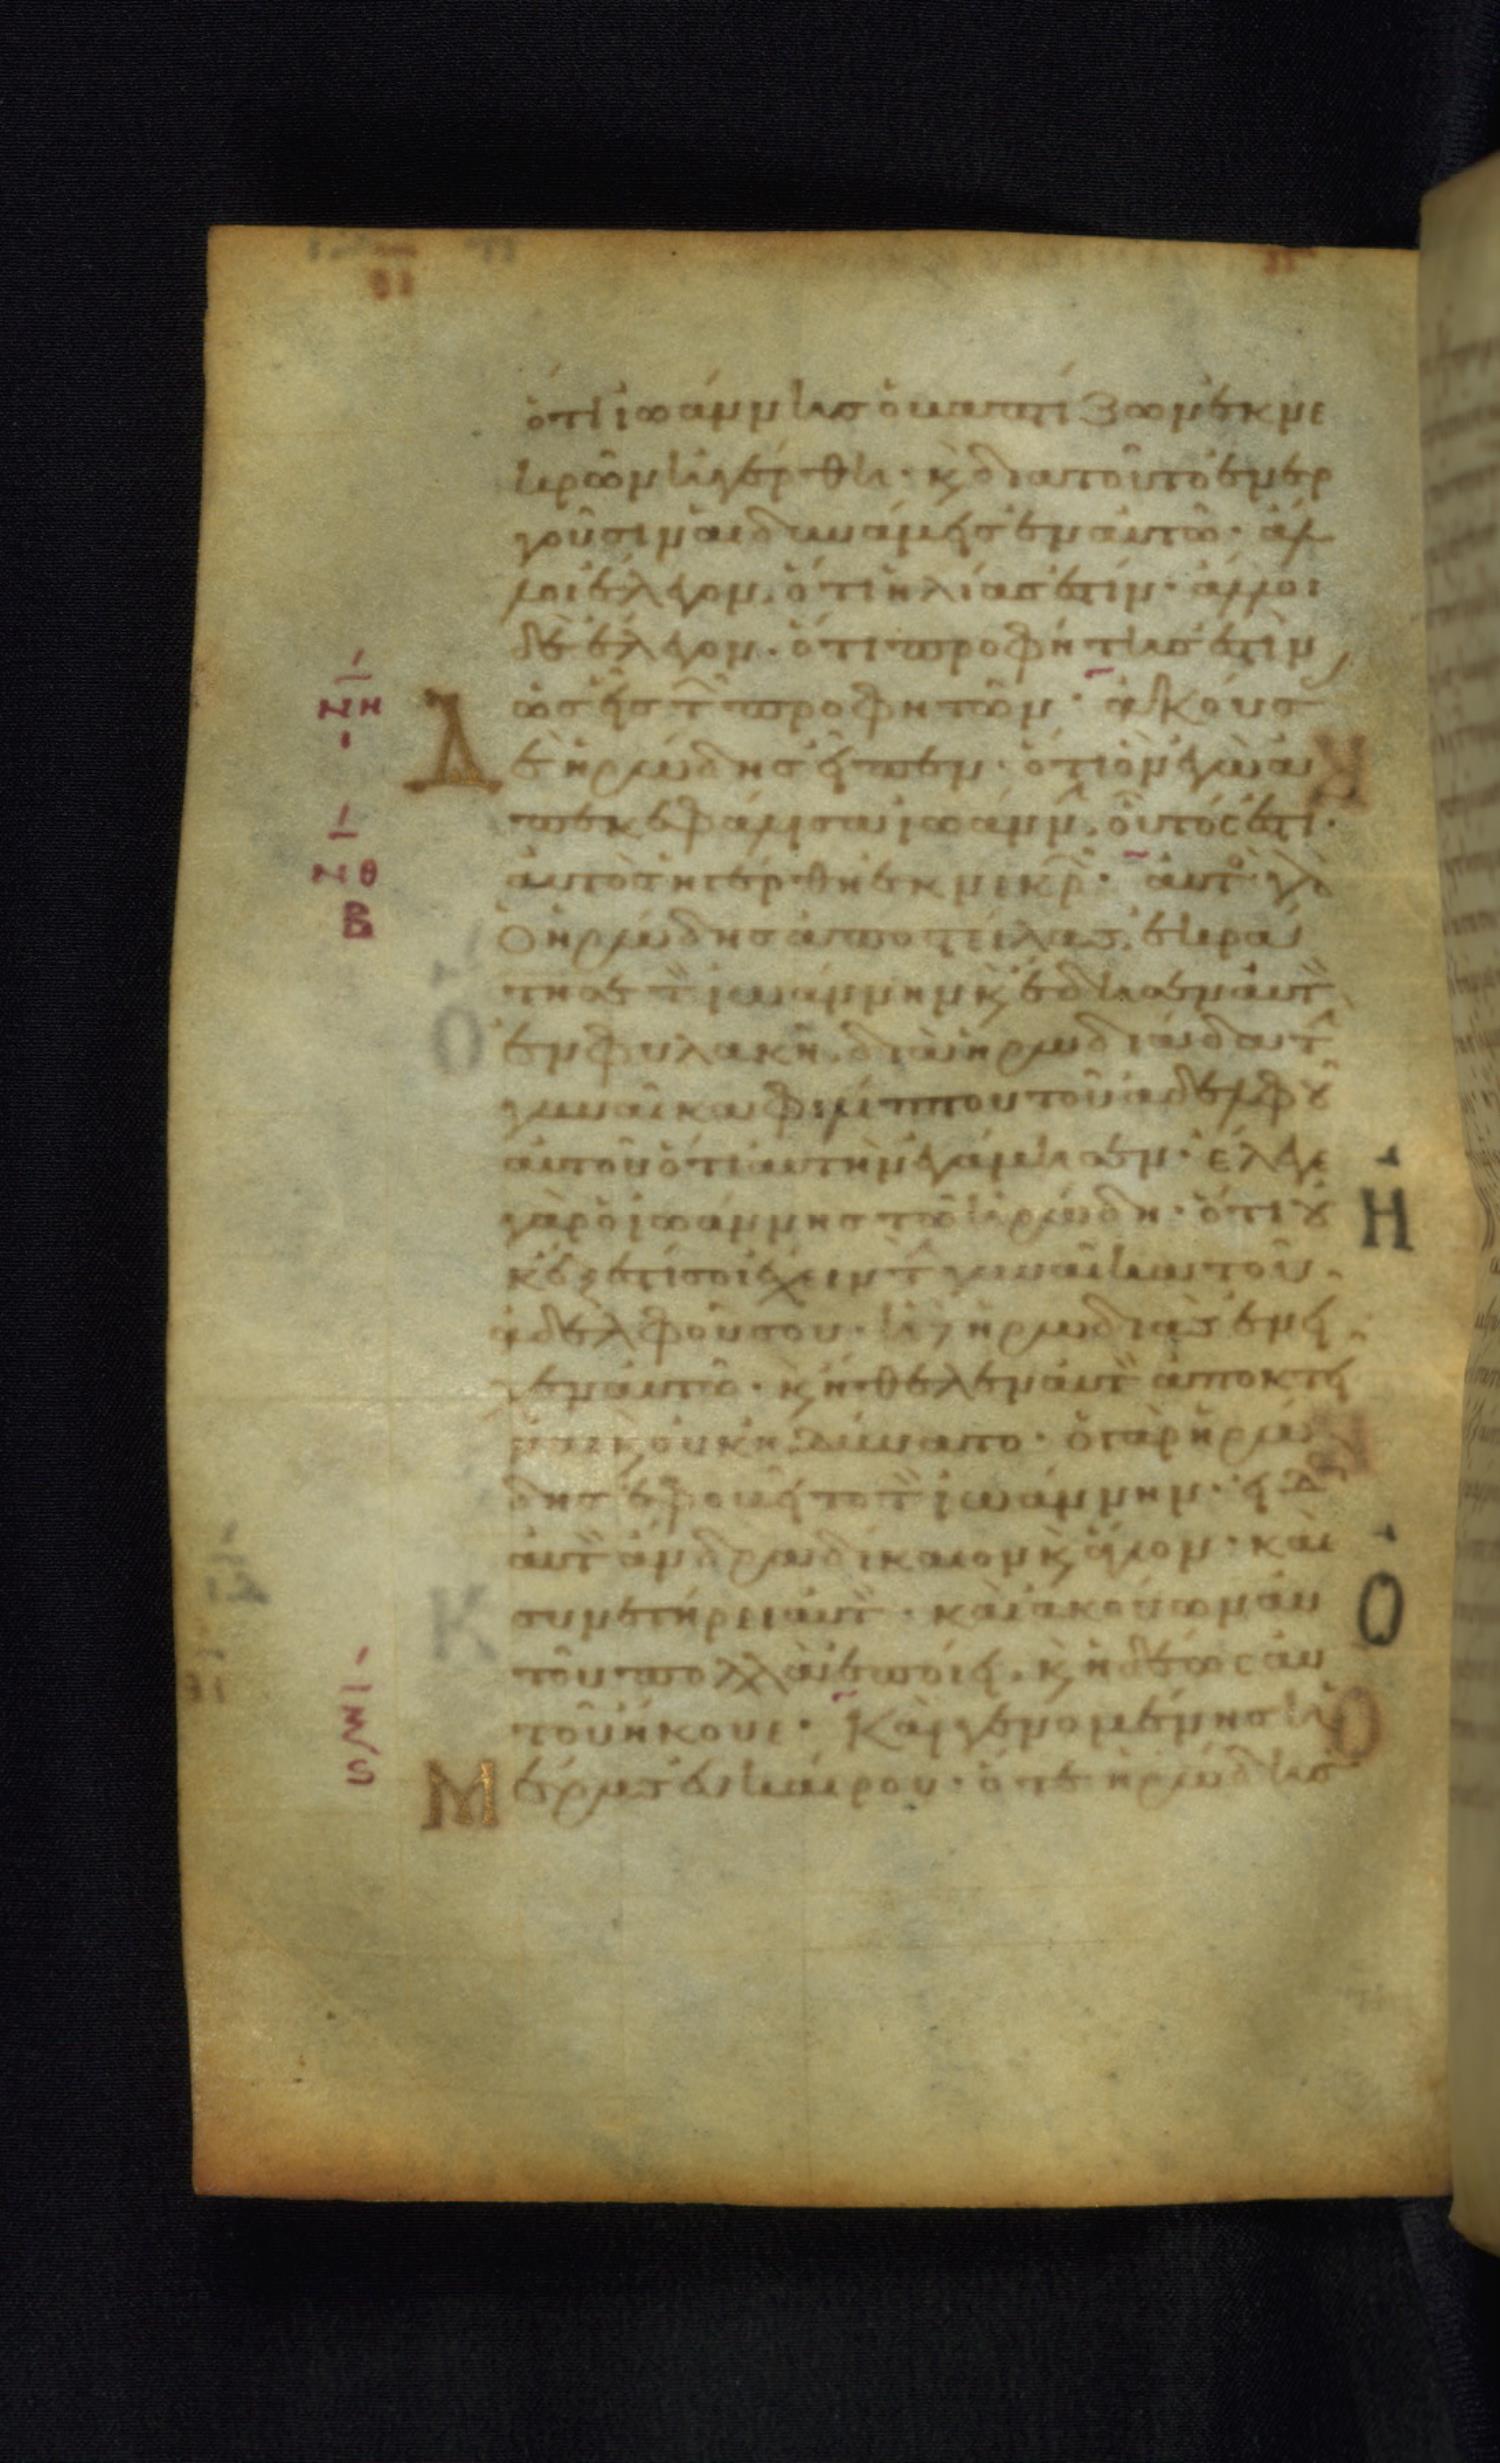 ὅτι ἰωάννης ὁ βαπτίζων ἐκ νε
κρῶν ἠγέρθη· κ̀ διατοῦτο ἐνερ
γοῦσιν αἱ δυνάμεις ἐν αὐτῶ· ἄλ
λοι ἔλεγον. ὅτι ἠλίας ἐστίν· ἄλλοι
δὲ ἔλεγον· ὅτι προφήτης ἐστὶν
ὡς εἷς τ̂ προφητῶν· ἀκούσ
ΝΗ
Ι
Δ
ὲ ἡρώδης εἶπεν· ὅτι ὃν ἐγὼ ἀ
πεκεφάλισα ἰωάνν. οὗτός ἐστι·
ΝΘ
Β
αὐτὸς ἠγέρθη ἐκ νεκρ̂· αὐτ̀ο γὰρ
ὁ ἡρώδης ἀποστείλας, ἐκρά
τησε τ̀ ἰωάννην κ̀ ἔδησεν αὐτ̀
ἐν φυλακῆ. διὰ ἡρωδιάδα τ̀
γυναῖκα φιλίππου τοῦ ἀδελφȣ̂
αὐτοῦ ὅτι αὐτὴν ἐγάμησεν· ἔλεγε
γὰρ ὁ ἰωάννης τῶ ἡρώδη· ὅτι ȣ̓
Η
κ ἔξεστί σοι ἔχειν τ̀ γυναῖκα τοῦ
ἀδελφοῦ σου· ἡ δ̀ ἡρωδιὰς ἐνεῖ
χεν αὐτῶ· κ̀ ἤθελεν αὐτ̀ ἀποκτεῖ
ναι κ̀ οὐκ ἠδύνατο· ὁ γὰρ ἡρώ
δης ἐφοβεῖτο τ̀ ἰωάννην· εἰδὼς
αὐτ̀ ἄνδρα δίκαιον κ̀ ἅγιον· καὶ
συνετήρει αὐτ̀· καὶ ἀκούων αὐ
Ο
τοῦ πολλὰ ἐποίει. κ̀ ἡδέως αὐ
τοῦ ἤκουε· Καὶ γενομένης ἡ
Ξ
Ϛ
Μ
έρας εὐκαίρου· ὅτε ἡρώδης